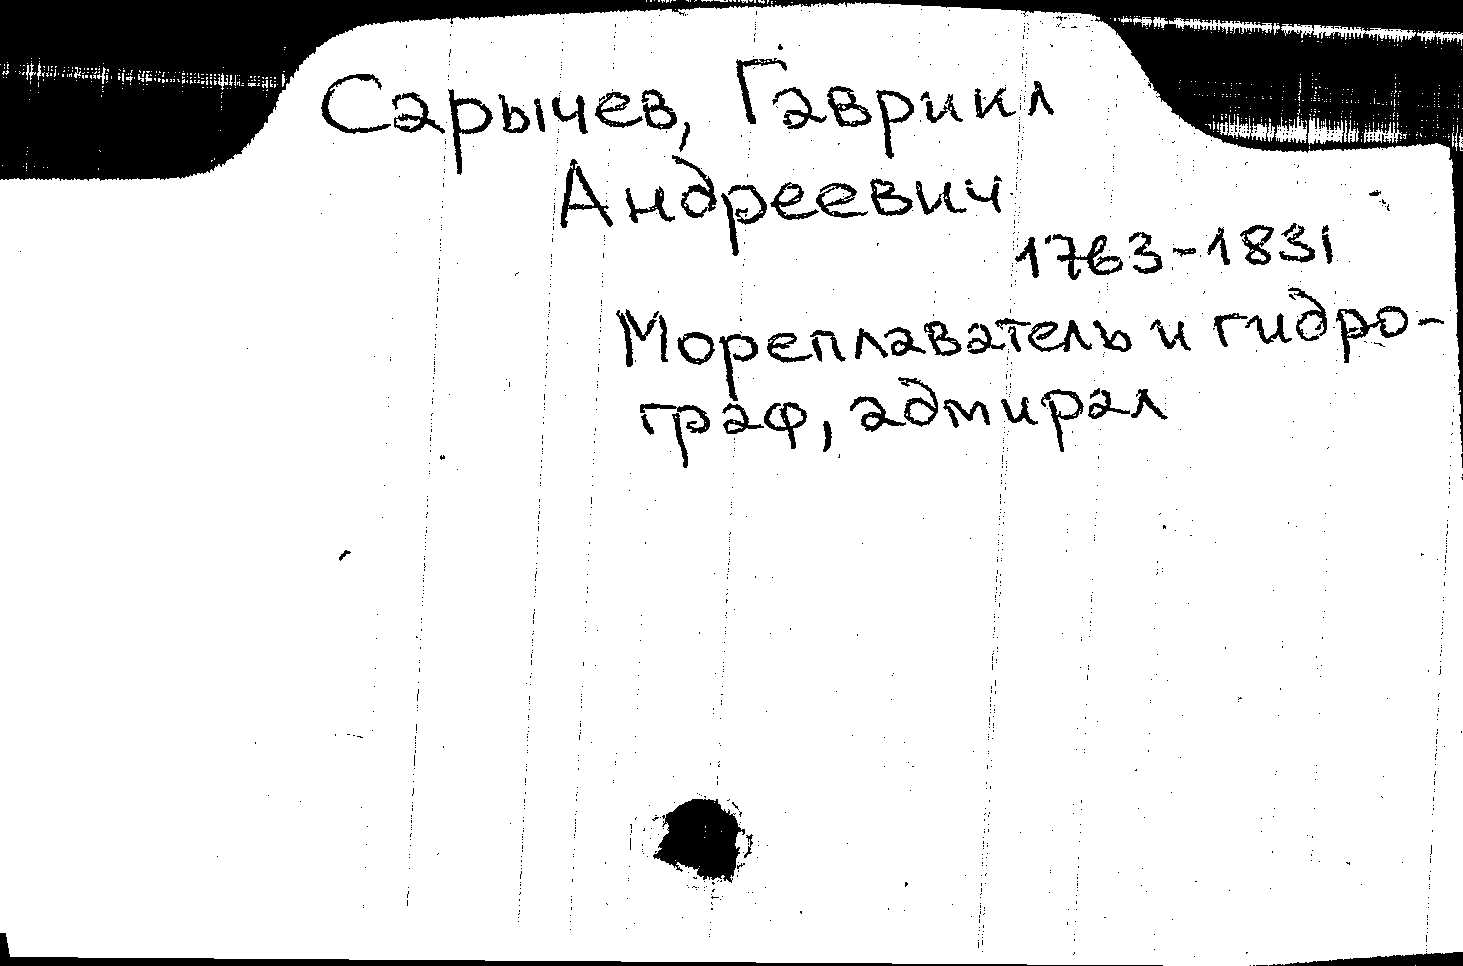 Сарычев, Гаврикл
Андреевич
1763-1831
Мореплаватель и гидро-
граф, адмирал